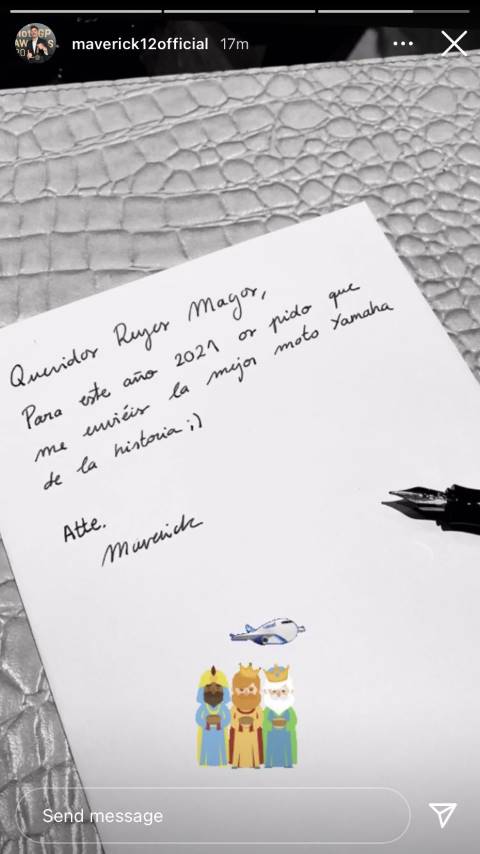 maverick12official 17m
Queridos Reyes Magos,
Para este año 2021 os pido que
me enviéis la mejor moto Yamaha
de la historia ;)
Atte.
Maverick
Send message